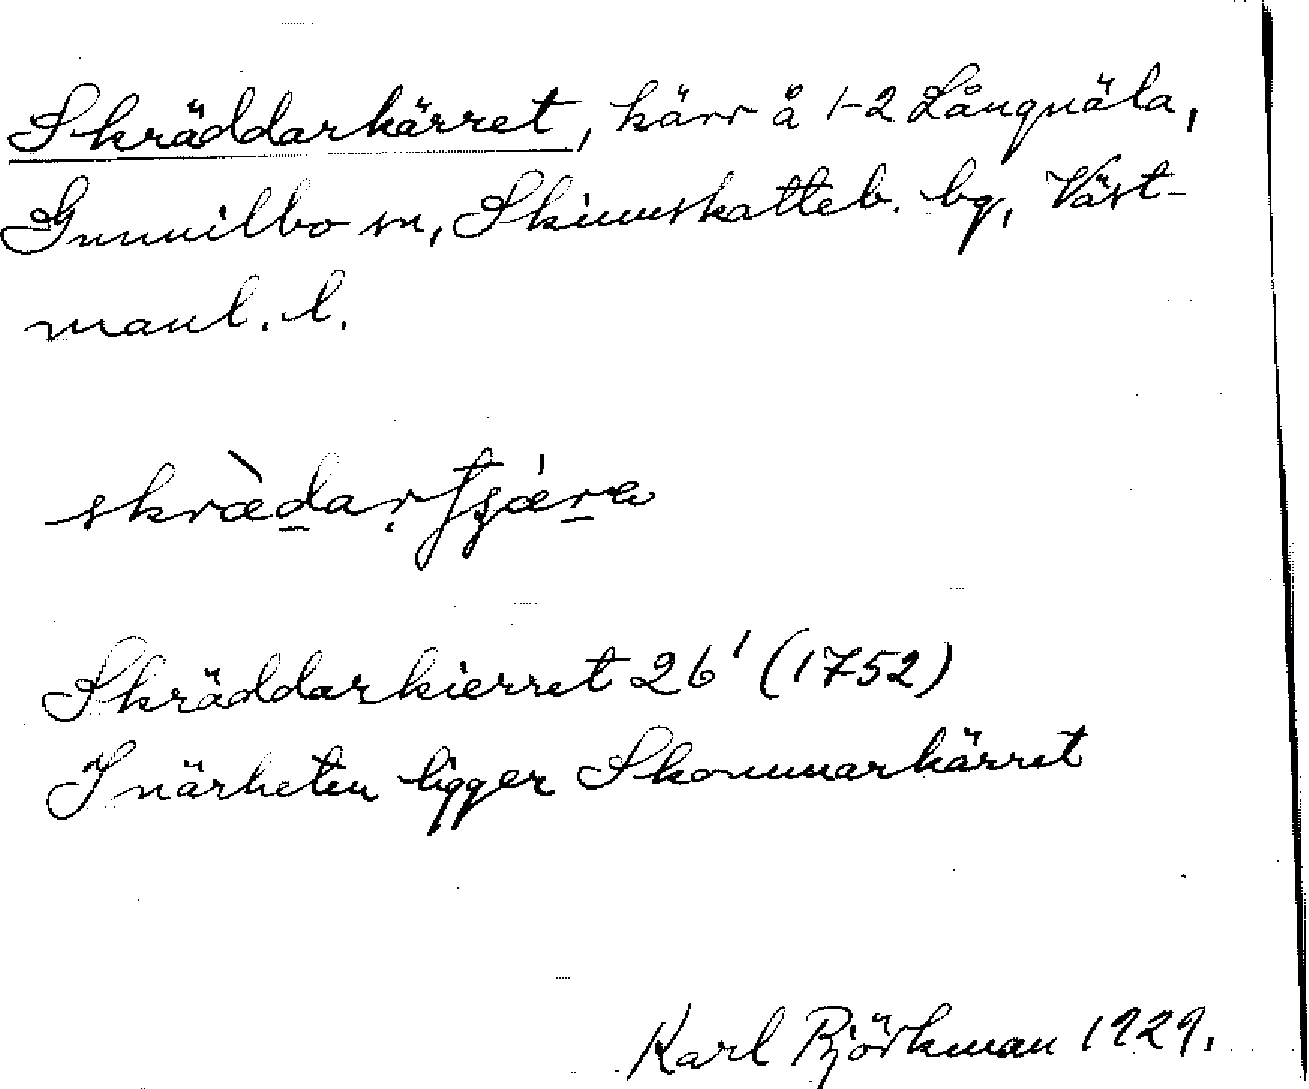 Skräddarkärret, kärr å 1-2 Långnäla,
Gunnilbo sn, Skinnskatteb. bg, Väst-
manl. l.
skrædar
Skräddarkierret 26¹ (1752)
I närheten ligger Skommarkärret
Karl Björkman 1929.